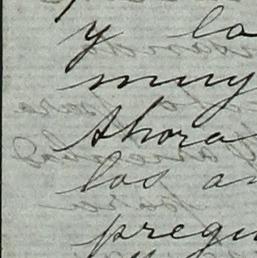 y la
muy
Ahora
los an
pregu